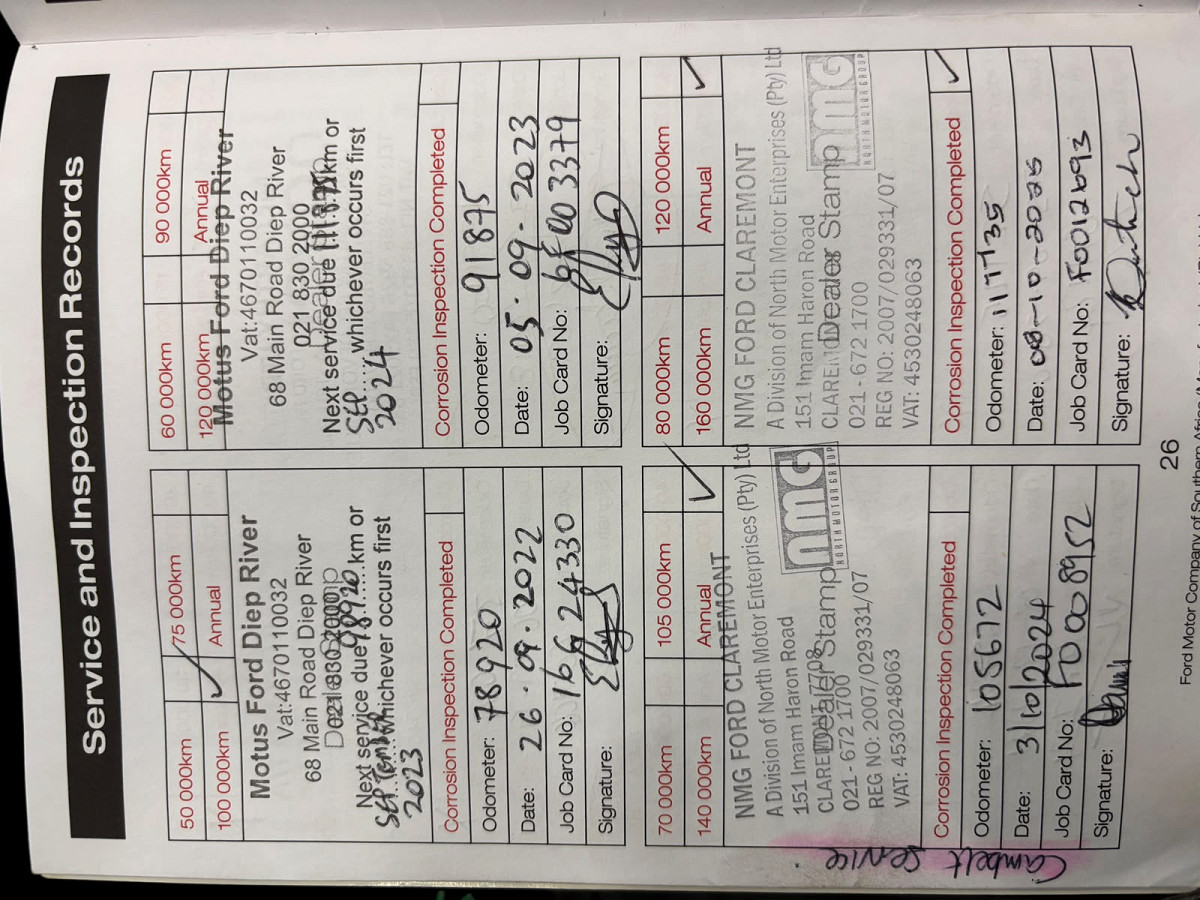 Service and Inspection Records
50 000km
75 000km
100 000km
Annual
Motus Ford Diep River
Vat:4670110032
68 Main Road Diep River
021 830 2000
Next service due 98920 km or
September whichever occurs first
2023
Corrosion Inspection Completed
Odometer: 78920
Date: 26.09.2022
Job Card No: 16G24330
Signature:
60 000km
90 000km
120 000km
Annual
Motus Ford Diep River
Vat:4670110032
68 Main Road Diep River
021 830 2000
Next service due km or
SEP whichever occurs first
2024
Corrosion Inspection Completed
Odometer: 91875
Date: 05.09.2023
Job Card No:
Signature:
70 000km
105 000km
140 000km
Annual
NMG FORD CLAREMONT
A Division of North Motor Enterprises (Pty) Ltd
151 Imam Haron Road
Dealer Stamp
021 - 672 1700
REG NO: 2007/029331/07
VAT: 4530248063
nmg
NORTH MOTOR GROUP
Corrosion Inspection Completed
Odometer: 105672
Date: 3/10/2024
Job Card No: F0008952
Signature:
Cambelt service.
80 000km
120 000km
160 000km
Annual
NMG FORD CLAREMONT
A Division of North Motor Enterprises (Pty) Ltd
151 Imam Haron Road
Dealer Stamp
021 - 672 1700
REG NO: 2007/029331/07
VAT: 4530248063
nmg
NORTH MOTOR GROUP
Corrosion Inspection Completed
Odometer: 117735
Date: 08-10-2025
Job Card No: F0012693
Signature:
26